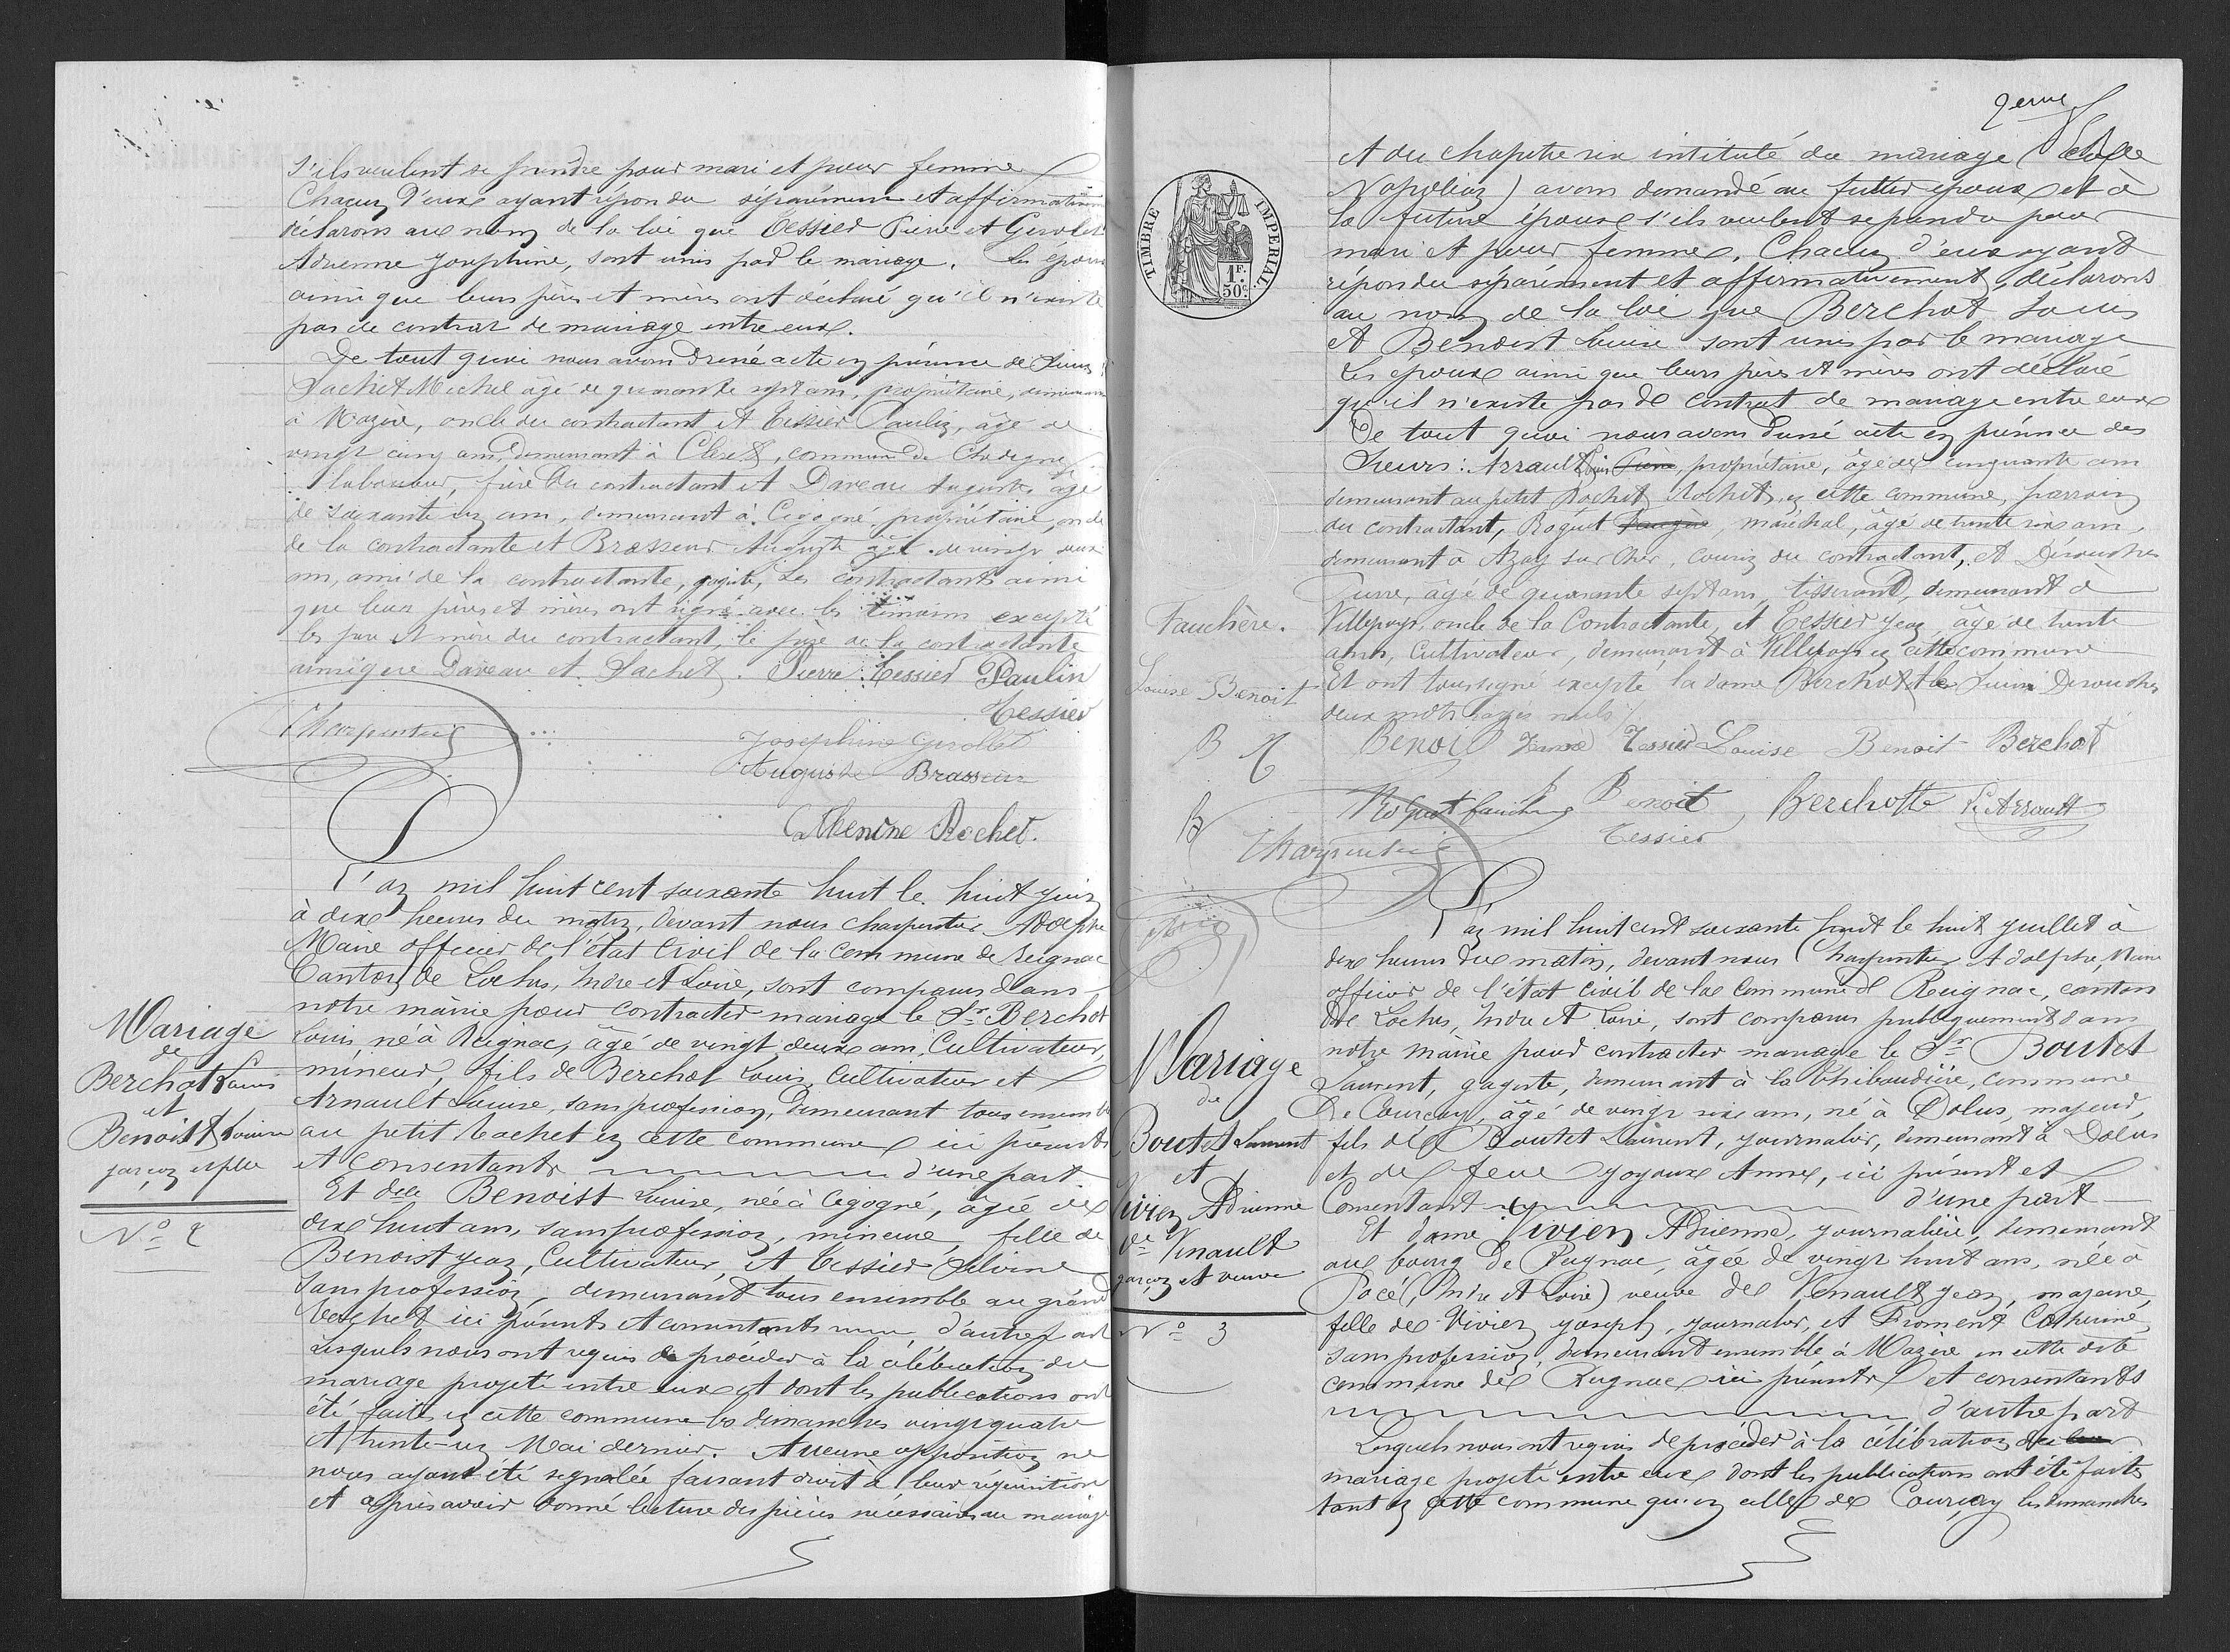 s'ils veulent se prendre pour mari et pour femme
Chacun d'eux ayant répondu séparément et affirmativement
déclarons au nom de la loi que Tessier Pierre et Gerollet
Adrienne Josephine, sont unis par le mariage. Les époux
ainsi que leurs pères et mères ont déclaré qu'il n'existe
pas de contrat de mariage entre eux.
De tout quoi nous avons dressé acte en présence de Sieurs
Sachet Michel âgé de quarante sept ans, propriétaire, demeurant
à Mazère, oncle du contractant et Tessier Paulin, âgé de
vingt cinq ans, demeurant à commune de Chedigny
laboureur, frère du contractant et Daveau Auguste âgé
de soixante un ans, demeurant à Cigogné, propriétaire, oncle
de la contractante et Brasseur Auguste âgé de vingt deux
ans, ami de la contractante, gagiste, Les contractants ainsi
que leurs pères et mères ont signé avec les témoins excepté
les père et mère du contractant, le père de la contractante
ainsi que Daveau et Sachet. Pierre Tessier Paulin
Tessier
Charpentier
Josephine Gerollet
Auguste Brasseur
Rochet.
L'an mil huit cent soixante huit le huit juin
à dix heures du matin, devant nous Charpentier Adolphe
Maire officier de l'état Civil de la Commune de Reignac
Canton de Loches, Indre et Loire, sont comparus dans
notre mairie pour contracter mariage le Sr Berchot
Louis, né à Reignac, âgé de vingt deux ans, Cultivateur,
mineur, fils de Berchot Louis, Cultivateur et
Arnault Louise, sans profession, demeurant tous ensemble
au petit en cette commune ici présents
et consentants d'une part
Et delle Benoist Louise, née à Cigogné, âgée de
dix huit ans, sans profession, mineure, fille de
Benoist Jean, Cultivateur, et Tessier Silvine
sans profession, demeurant tous ensemble au grand
ici présents et consentants d'autre part
Lesquels nous ont requis de procéder à la célébration du
mariage projeté entre eux et dont les publications ont
été faites en cette commune les dimanches vingt quatre
et trente-un Mai dernier. Aucune opposition ne
nous ayant été signalée faisant droit à leur réquisition
et après avoir donné lecture des pièces nécessaires au mariage
Mariage
de
Berchot Louis
et
Benoist Louise
garçon et fille
No 2
2eme
et du chapitre six intitulé du mariage
Napoléon) avons demandé au futur époux et à
la future épouse s'ils veulent se prendre pour
mari et pour femme. Chacun d'eux ayant
répondu séparément et affirmativement, déclarons
au nom de la loi que Berchot Louis
et Benoist Louise sont unis par le mariage
Les époux ainsi que leurs pères et mères ont déclaré
qu'il n'existe pas de contrat de mariage entre eux
De tout quoi nous avons dressé acte en présence des
Sieurs: Arrault Louis, propriétaire, âgé de cinquante ans
demeurant au petit Rochet en cette commune, parrain
du contractant, Roguet, maréchal, âgé de trente six ans,
demeurant à Azay sur Cher, cousin du contractant, et Dérouches
Pierre, âgé de quarante sept ans, tisserand, demeurant à
Villepays, oncle de la Contractante, et Tessier Jean, âgé de trente
ans, Cultivateur, demeurant à Villepays en cette commune
Et ont tous signé excepté la dame Berchot et le Sieur Derouches
deux mots rayés nuls
TIMBRE IMPERIAL.
1F.
50c.
Fauchère.
Louise Benoit
Benoi Tessier Louise Benoit Berchot
Roguet Benoit Berchotte L. Arrault
Tessier
Charpentier
L'an mil huit cent soixante huit le huit juillet à
dix heures du matin, devant nous Charpentier Adolphe, Maire
officier de l'état Civil de la Commune de Reignac, canton
de Loches, Indre et Loire, sont comparus publiquement dans
notre mairie pour contracter mariage le Sr Boutet
Laurent, gagiste, demeurant à la Thibaudière, Commune
De Courçay, âgé de vingt six ans, né à Dolus, majeur,
fils de Boutet Laurent, journalier, demeurant à Dolus
et de feue Joyeux Anne, ici présent et
Consentant d'une part
Et dame Vivien Adrienne, journalière, demeurant
au bourg de Reignac, âgée de vingt huit ans, née à
Pocé, (Indre et Loire) veuve de Venault Jean, majeure,
fille de Vivien Joseph, journalier, et Froment Catherine,
sans profession, demeurant ensemble à Mazère en cette dite
commune de Reignac ici présents et consentants
d'autre part
Lesquels nous ont requis de procéder à la célébration du
mariage projeté entre eux dont les publications ont été faites
tant en cette commune qu'en celle de Courçay les dimanches
Mariage
de
Boutet Laurent
et
Vivien Adrienne
Ve Venault
garçon et veuve
No 3